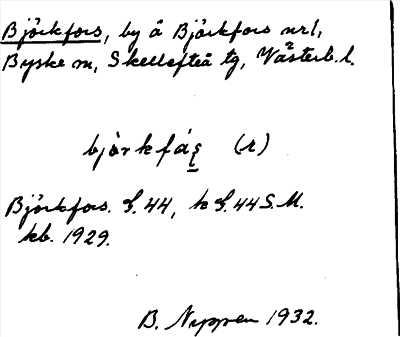 Björkfors, by å Björkfors nr1,
Byske sn, Skellefteå tg, Västerb. l.
bjòrkfáș (r)
Björkfors. G. 44, k G. 44 S.M.
kb. 1929.
B. Nyppen 1932.